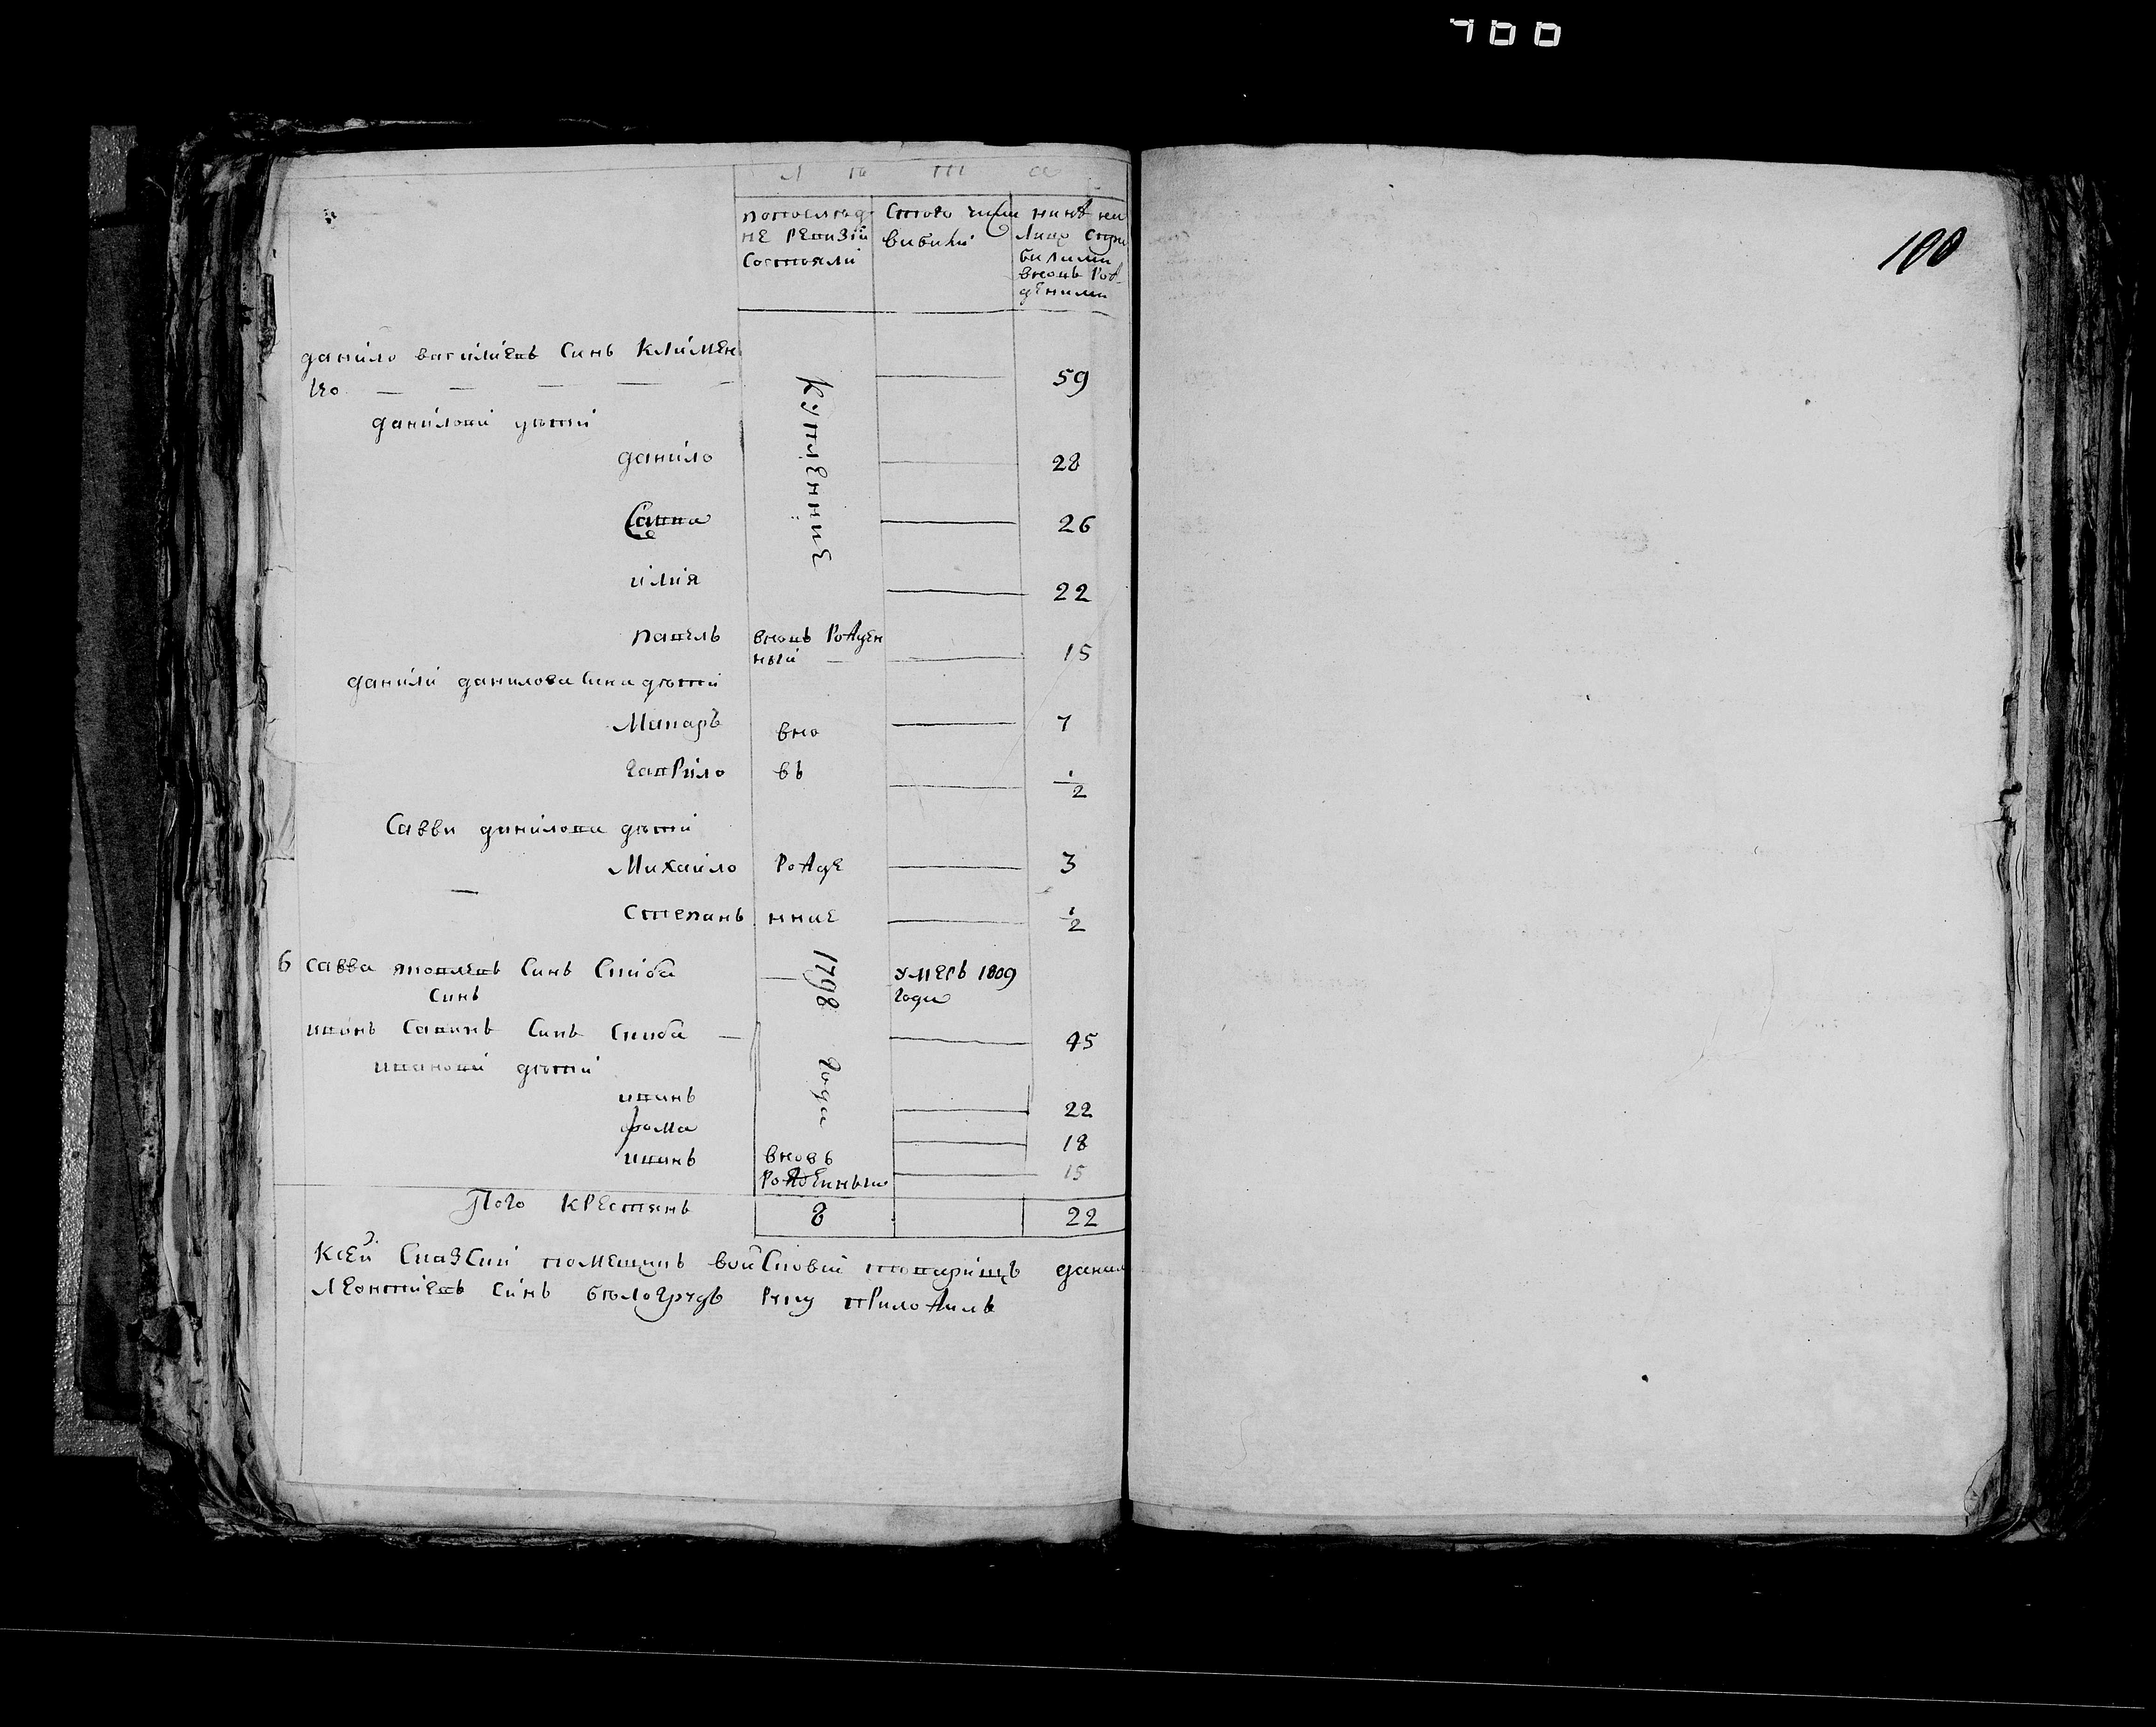 100
Л Ѣ Т А
попослѣд
не ревизіи
состояли
Стого числа
вибили
нинѣ на
Лицо
били
вновь Рож
денними
данило василиевъ Синь Климен
ко
59
даниловы дѣти
данило 28
Савва 26
илия 22
Купленние
павелъ вновь Рожден
ный 15
данили данилова Сина дѣти
Макаръ вно 7
Гаврило въ 1/2
Савви данилова дѣти
Михайло Рожде 3
Степанъ ние 1/2
6 Савва яковлевъ Синъ Скиба умеръ 1809
года
Синъ
иванъ Савинъ Синъ Скиба 45
ивановы дѣти
1798 года
иванъ 22
фома 18
иванъ вновь
Рожденный 15
Того крестянъ 8 22
Ксей Сказки помещикъ войсковий товарищъ данил
Леонтиевъ Синъ белогрудъ Руку приложилъ